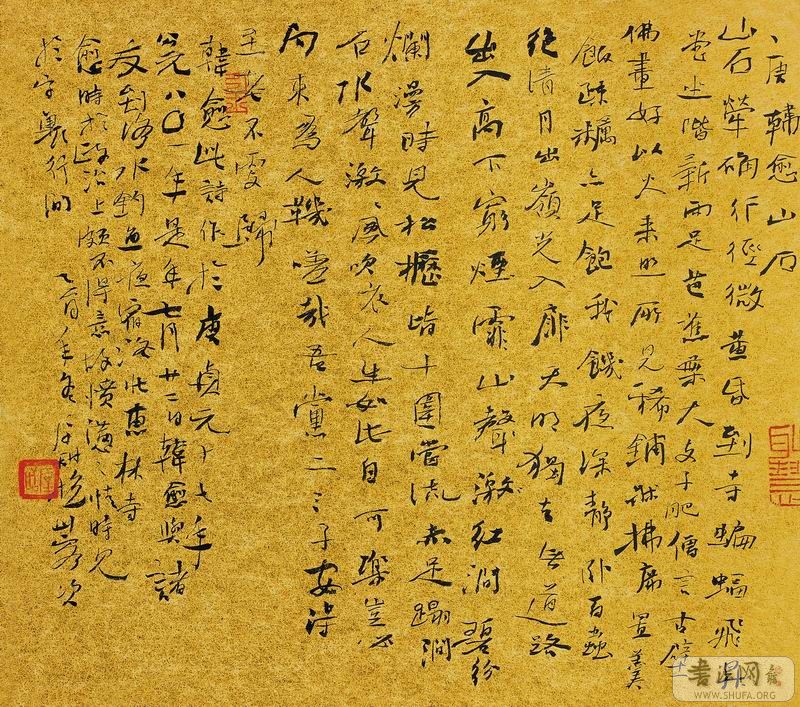 唐韓愈山石
山石犖确行徑微黃昏到寺蝙蝠飛升
堂坐階新雨足芭蕉葉大支子肥僧言古壁
佛畫好以火来照所見稀鋪床拂席置羹
飯疎糲亦足飽我饑夜深靜卧百蟲
絕清月出嶺光入扉天明獨去無道路
出入高下窮煙霏山聲激紅澗碧紛
爛漫時見松櫪皆十圍當流赤足蹋澗
石水聲激激風吹衣人生如此自可樂豈必
局束為人鞿嗟哉吾黨二三子安得
至老不更歸
韓愈此詩作於唐貞元十七年
公元八〇一年是年七月廿二日韓愈與諸
友到洛水釣魚夜宿洛北惠林寺
愈時於政治上頗不得意故憤懣之情時見
於字裏行間
乙酉年冬
书法网
WWW.SHUFA.ORG